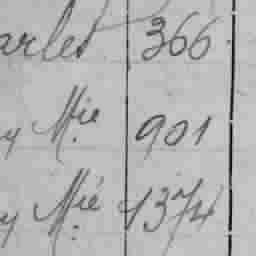 arles 366
y Mie 901
y Mié 1374